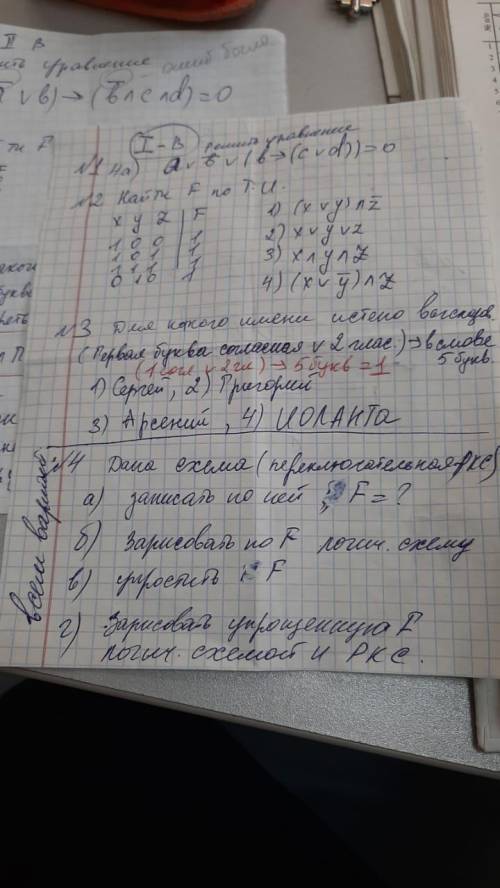 II В
уравнение
∨ b) → (b̄ ∧ c ∧ d) = 0
I - В решить уравнение
№1 4a) a ∨ b̄ ∨ (b → (c ∨ d)) = 0
№2 Найти F по Т.И.
x y z F
1 0 0 1
1 0 1 1
1 1 1 1
0 1 0 1
1) (x ∨ y) ∧ z̄
2) x ∨ y ∨ z
3) x ∧ y ∧ z̄
4) (x ∨ ȳ) ∧ z̄
№3 Для какого имени истено высказыв.
(Первая буква согласная ∨ 2 глас.) → в слове
5 букв.
(1 согл ∨ 2 гл) → 5 букв = 1
1) Сергей, 2) Григорий
3) Арсений, 4) ИОЛАНТА
всем вариант
№4 Дана схема (переключательная РКС)
а) записать по ней F = ?
б) Зарисовать по F логич. схему
в) упростить F
г) Зарисовать упрощенную F
логич. схемой и РКС.